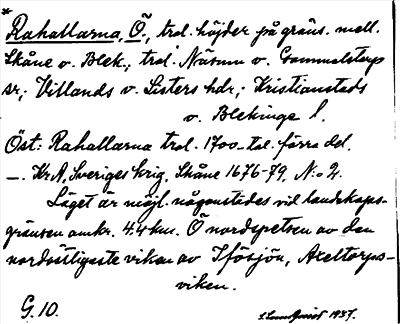 *
Rahallarna, Ö., trol. höjder på gräns. mell.
Skåne o. Blek.; trol. Näsum o. Gammalstorp
sr; Villands o. Listers hdr; Kristianstads
o. Blekinge l.
Öst: Rahallarna trol. 1700-tal. förra del.
—. KrA, Sveriges krig. Skåne 1676-79, N:o 2.
Läget är möjl. någonstädes vid landskaps-
gränsen omkr. 4.4 km. Ö nordspetsen av den
nordöstligaste viken av Ifösjön, Axeltorps-
viken.
G. 10.
1937.